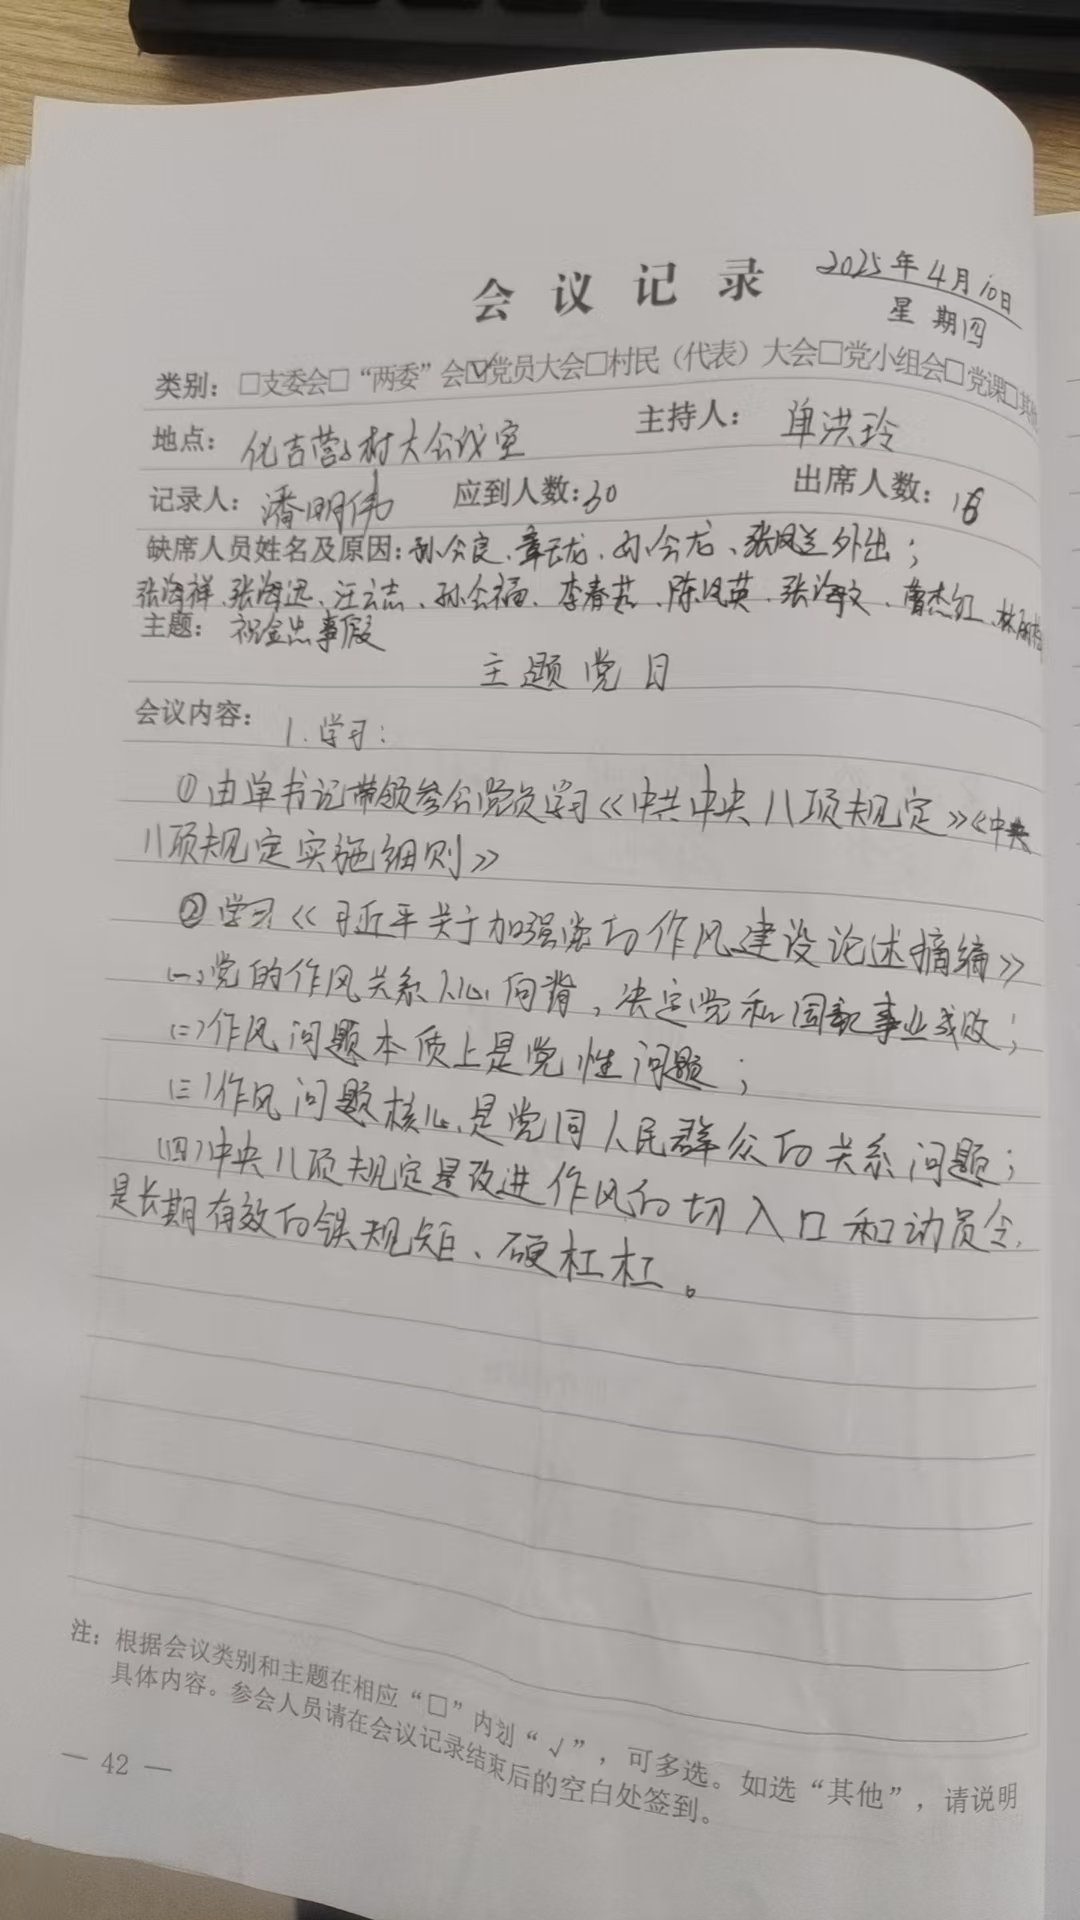 会议记录
2025年4月10日
星期四
类别：□支委会□“两委”会☑党员大会□村民（代表）大会□党小组会□党课□其他
地点：化吉营子村大会议室 主持人：单洪玲
记录人：潘明伟 应到人数：30 出席人数：16
缺席人员姓名及原因：孙会良、章云龙、孙会龙、张凤兰外出；
张海祥、张海迅、汪云志、孙会福、李春芸、陈凤英、张海文、曹杰红、林
主题：祝金忠事假
主题党日
会议内容：1.学习：
①由单书记带领参会党员学习《中共中央八项规定》《中央
八项规定实施细则》
②学习《习近平关于加强党的作风建设论述摘编》
(一)党的作风关系人心向背，决定党和国家事业成败；
(二)作风问题本质上是党性问题；
(三)作风问题核心是党同人民群众的关系问题；
(四)中央八项规定是改进作风的切入口和动员令，
是长期有效的铁规矩、硬杠杠。
注：根据会议类别和主题在相应“□”内划“√”，可多选。如选“其他”，请说明
具体内容。参会人员请在会议记录结束后的空白处签到。
— 42 —